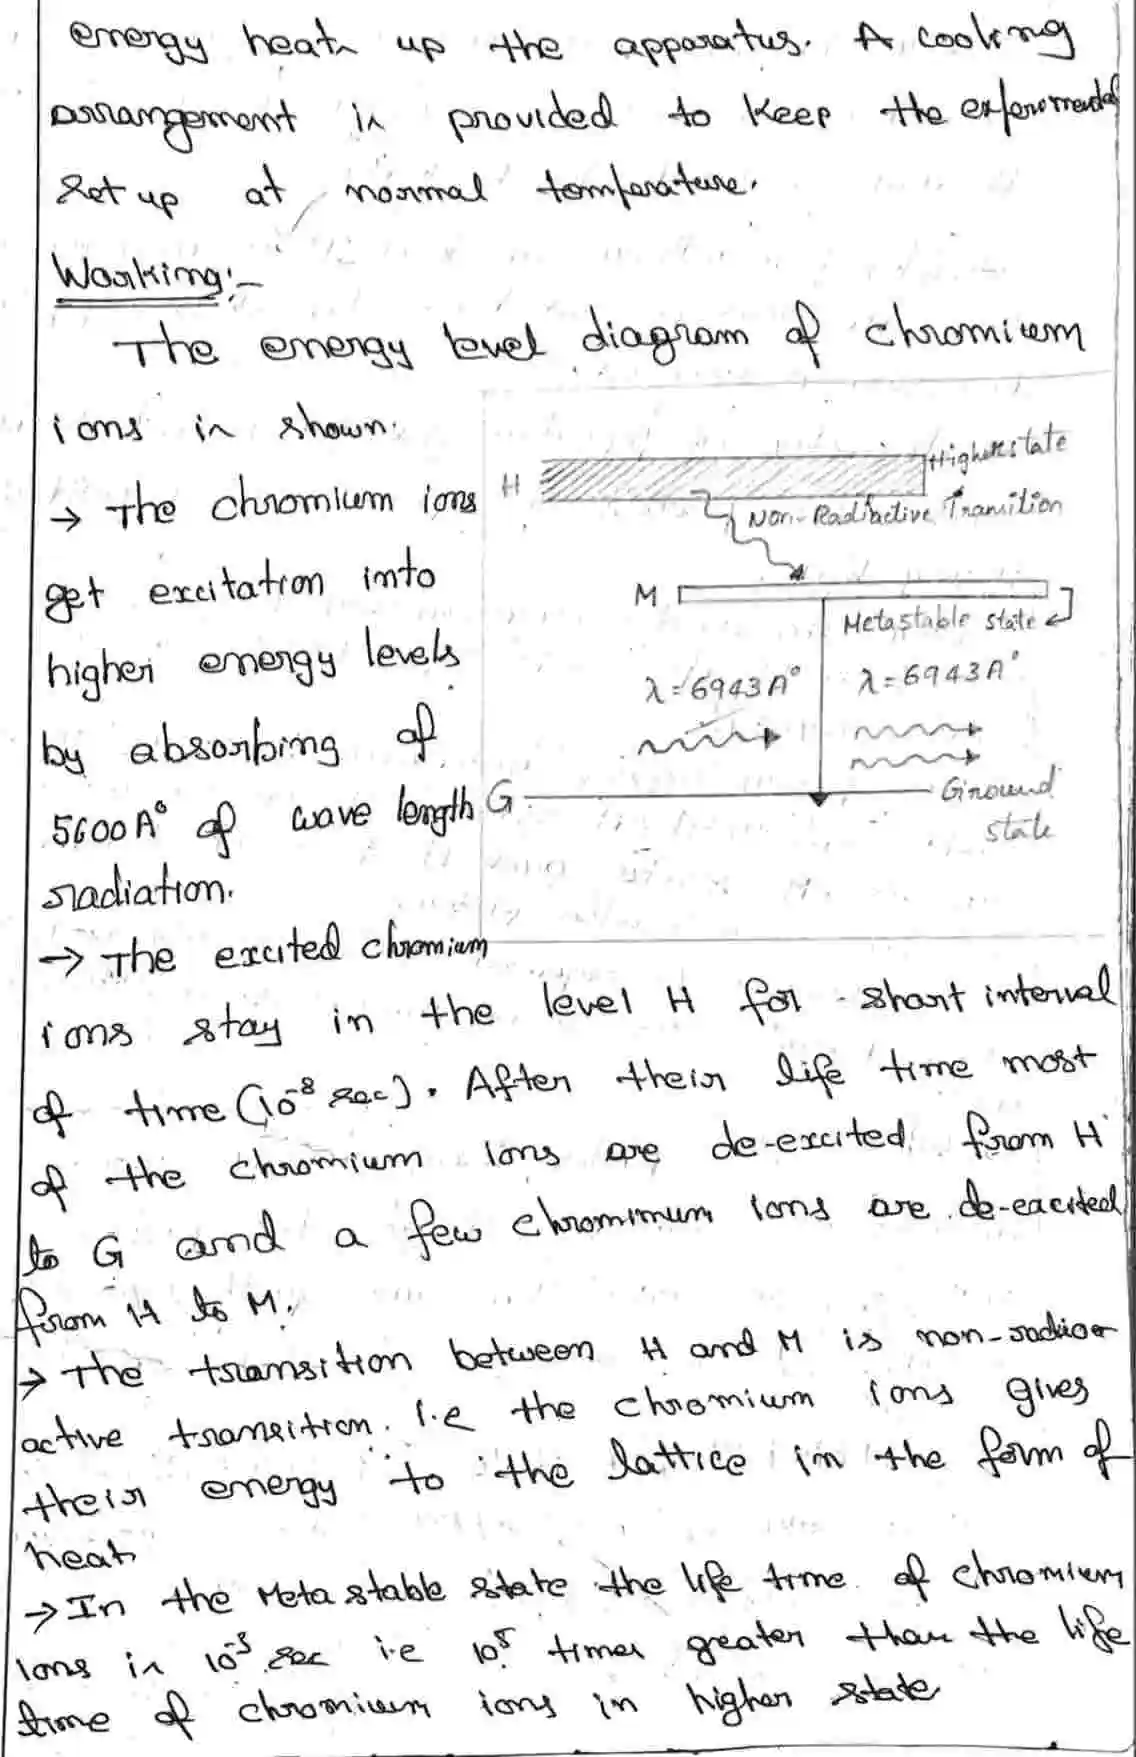 energy heats up the apparatus. A cooling
arrangement is provided to keep the experimental
set up at normal temperature.
Working:-
The energy level diagram of chromium
ions is shown.
→ The chromium ions
get excitation into
higher energy levels
by absorbing of
5600A° of wave length
radiation.
H
Higher state
Non-Radiactive Transition
M
Metastable state
λ=6943A° λ=6943A°
G
Ground
state
→ The excited chromium
ions stay in the level H for short interval
of time (10⁻⁸ sec). After their life time most
of the chromium ions are de-excited from H
to G and a few chromimum ions are de-excited
from H to M.
→ The transition between H and M is non-radio
active transition. i.e the chromium ions gives
their energy to the lattice in the form of
heat
→ In the Meta stable state the life time of chromium
ions is 10⁻³ sec i.e 10⁵ times greater than the life
time of chromium ions in higher state